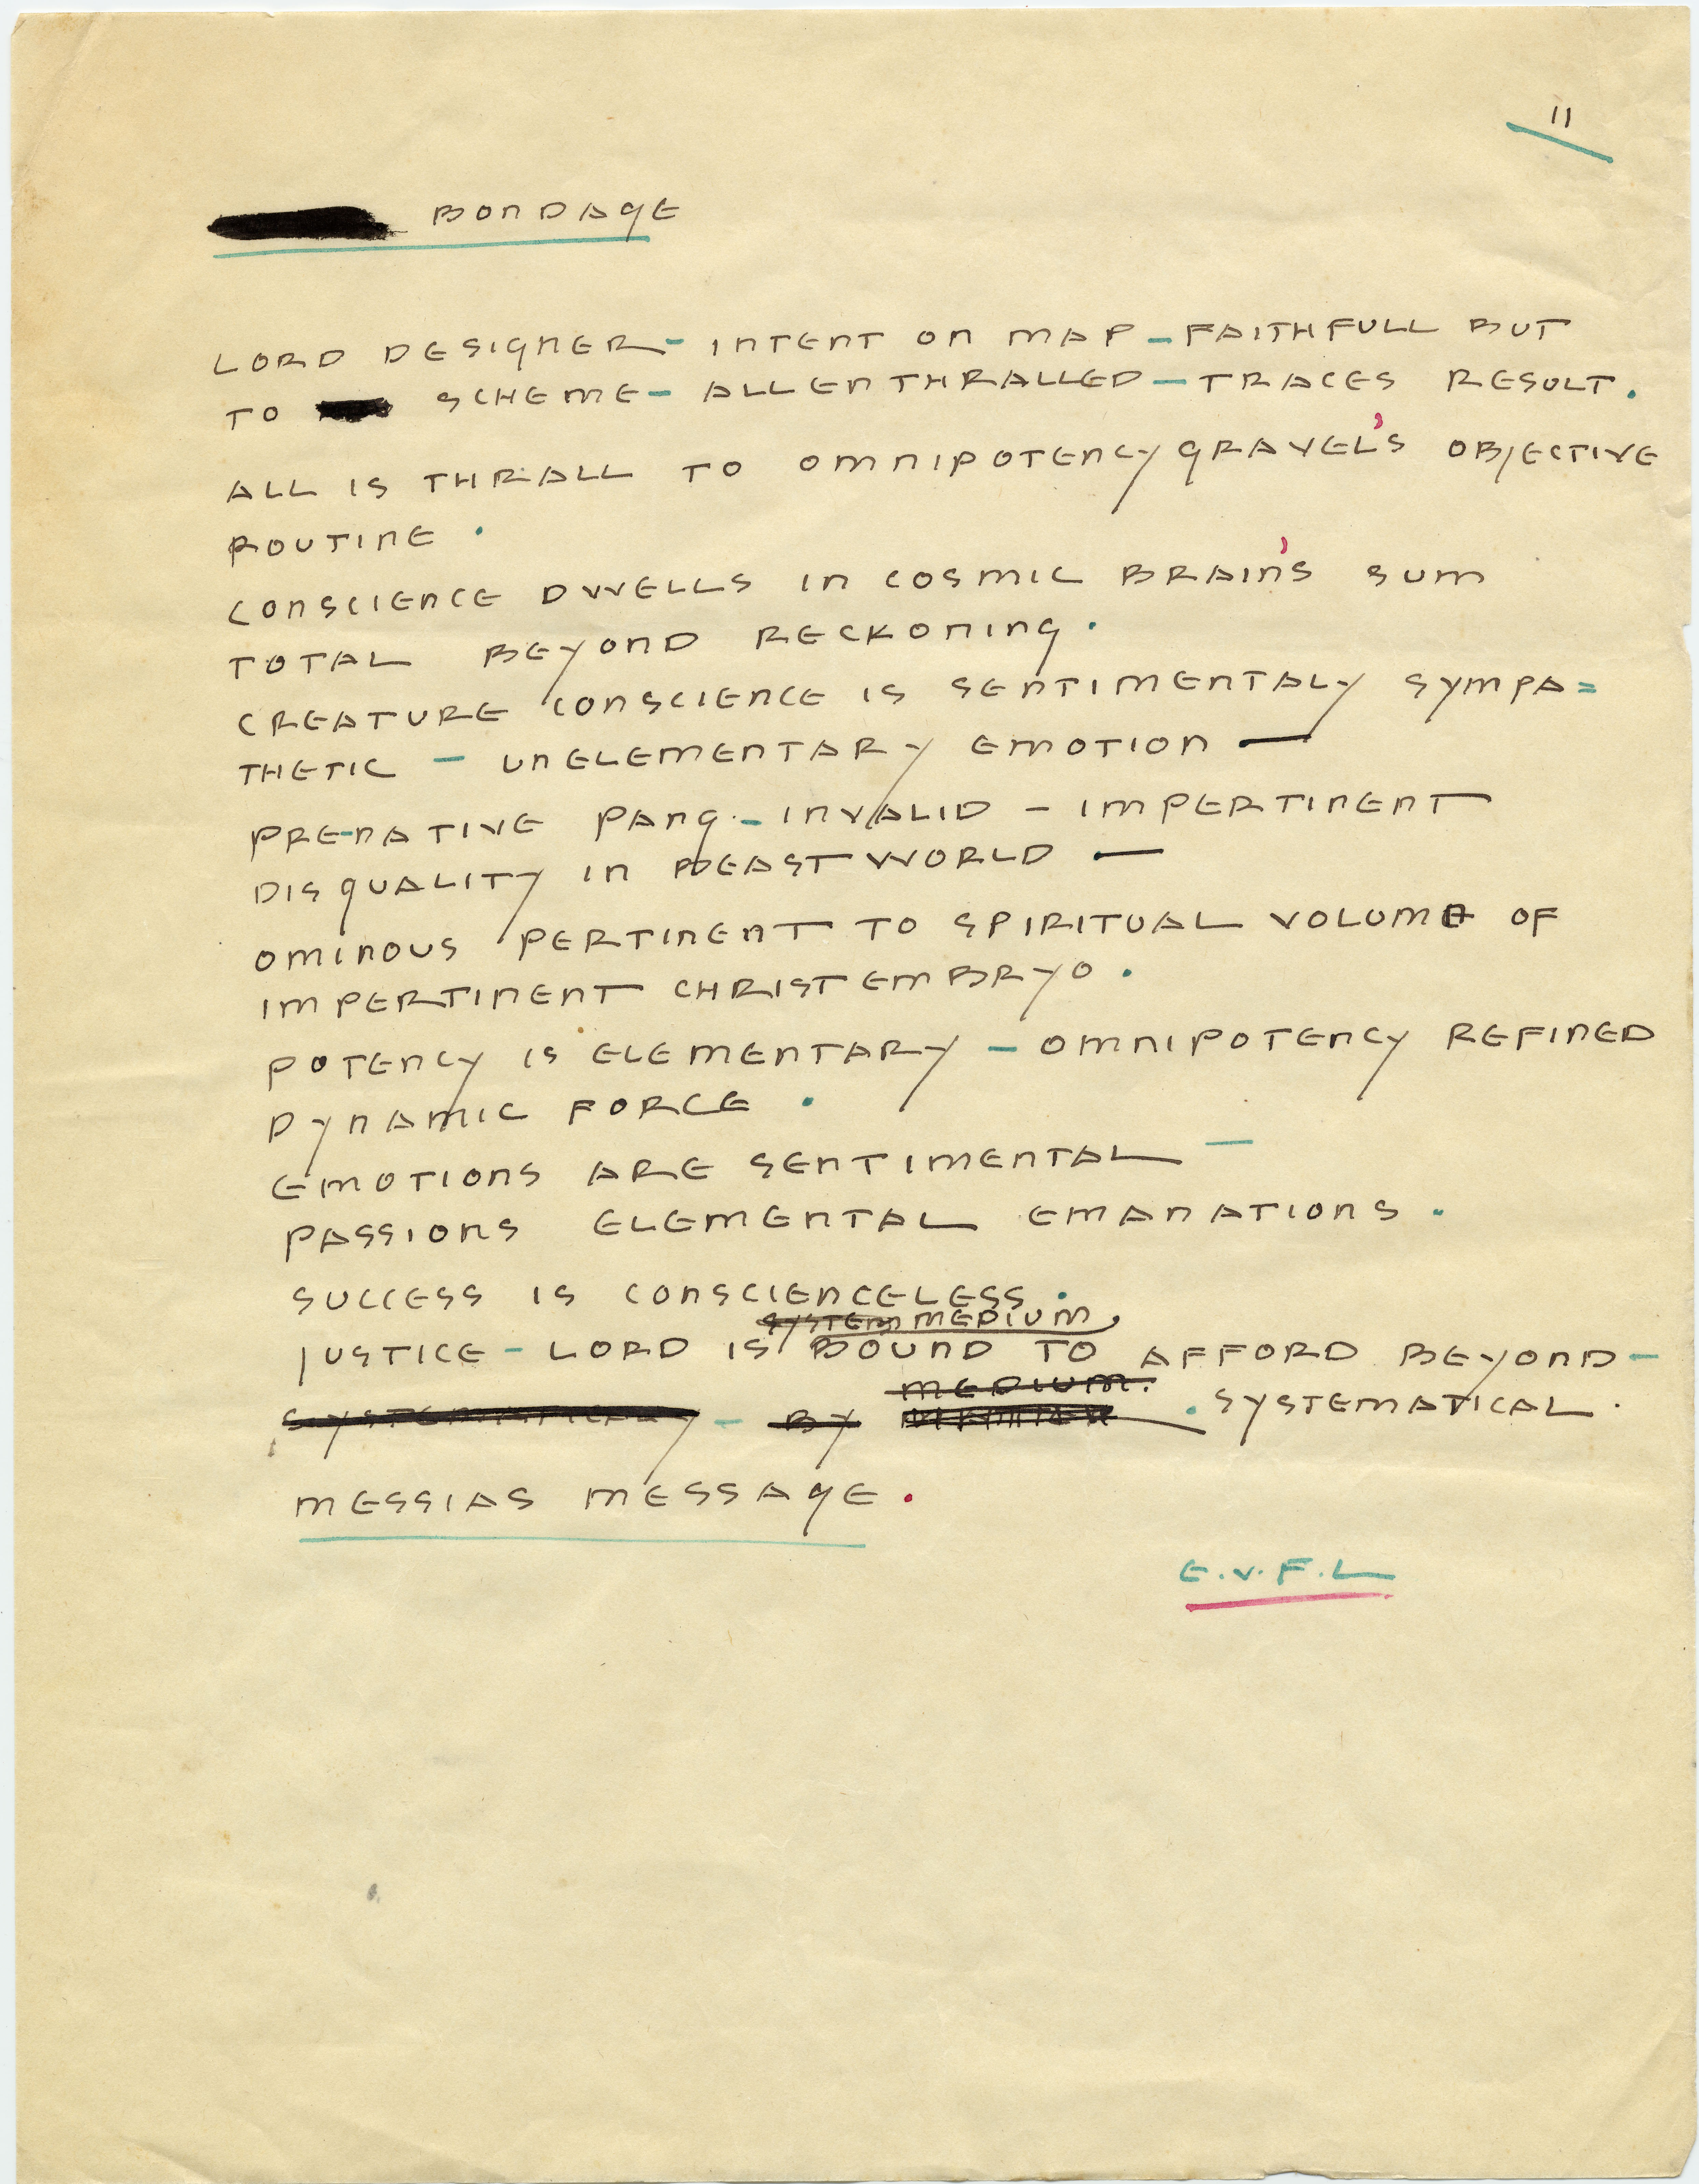 11
BONDAGE
LORD DESIGNER - INTENT ON MAP - FAITHFULL BUT
TO SCHEME - ALL ENTHRALLED - TRACES RESULT.
ALL IS THRALL TO OMNIPOTENCY GRAVEL'S OBJECTIVE
ROUTINE.
CONSCIENCE DWELLS IN COSMIC BRAIN'S SUM
TOTAL BEYOND RECKONING.
CREATURE CONSCIENCE IS SENTIMENTALY SYMPA=
THETIC - UNELEMENTARY EMOTION —
PRE-NATIVE PANG - INVALID - IMPERTINENT
DISQUALITY IN BEASTWORLD —
OMINOUS PERTINENT TO SPIRITUAL VOLUME OF
IMPERTINENT CHRISTEMBRYO.
POTENCY IS ELEMENTARY - OMNIPOTENCY REFINED
DYNAMIC FORCE.
EMOTIONS ARE SENTIMENTAL -
PASSIONS ELEMENTAL EMANATIONS.
SUCCESS IS CONSCIENCELESS.
SYSTEM MEDIUM
JUSTICE - LORD IS BOUND TO AFFORD BEYOND -
MEDIUM.
SYSTEMATICALY - BY . SYSTEMATICAL.
MESSIAS MESSAGE.
E.V.F.L